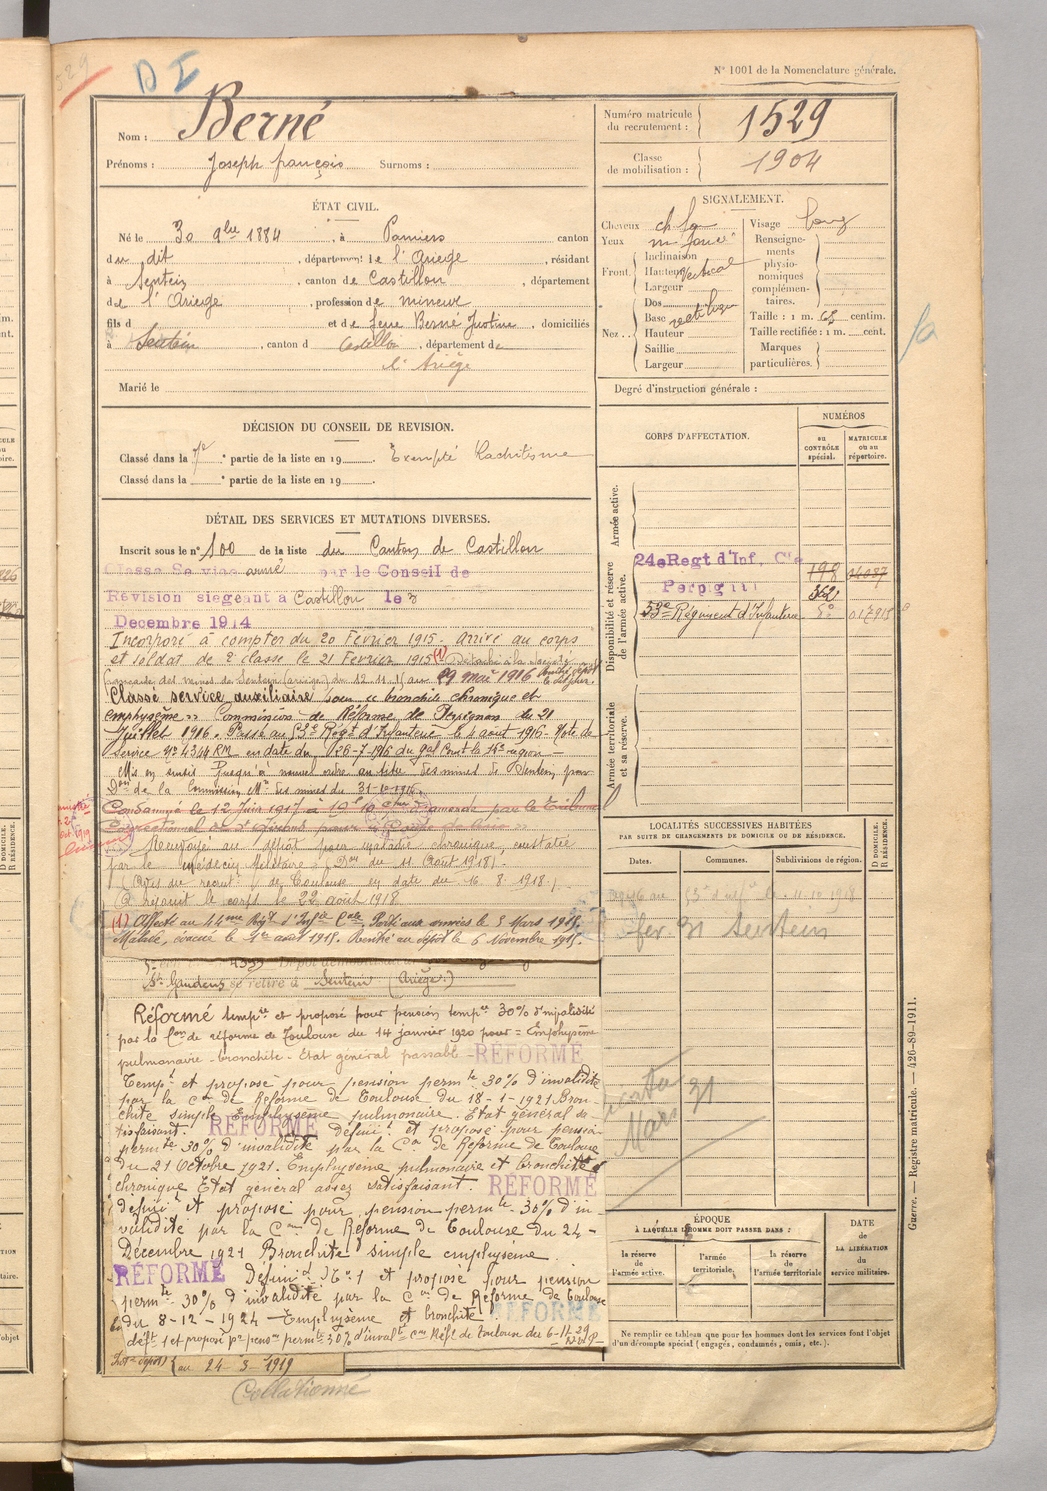 N° 1001 de la Nomenclature générale.
529
D I
Nom : Berné
Prénoms : Joseph françois Surnoms :
Numéro matricule du recrutement : 1529
Classe de mobilisation : 1904
ÉTAT CIVIL.
Né le 30 9bre 1884, à Pamiers canton
du dit, département de l'Ariège, résidant
à Sentein, canton de Castillon, département
de l'Ariège, profession de mineur
fils d et de feue Berné Justine, domiciliés
à Sentein, canton d Castillon, département de
l'Ariège
Marié le
SIGNALEMENT.
Cheveux ch. fa
Yeux m. foncé
Front. Inclinaison
Hauteur vertical
Largeur
Nez. Dos
Base rectiligne
Hauteur
Saillie
Largeur
Visage long
Renseignements physionomiques complémentaires.
Taille : 1 m. 63 centim.
Taille rectifiée : 1 m. cent.
Marques particulières.
Degré d'instruction générale :
DÉCISION DU CONSEIL DE REVISION.
Classé dans la 7e partie de la liste en 19 . Exempté Rachitisme
Classé dans la e partie de la liste en 19 .
CORPS D'AFFECTATION.
NUMÉROS
au CONTRÔLE spécial.
MATRICULE ou au répertoire.
Armée active.
Disponibilité et réserve de l'armée active.
24e Regt d'Inf. Cie 198 04087
Perpignan 362
53e Régiment d'Infanterie 5e 017915
Armée territoriale et sa réserve.
DÉTAIL DES SERVICES ET MUTATIONS DIVERSES.
Inscrit sous le n° 100 de la liste du Canton de Castillon
Classe Service armé par le Conseil de
Révision siegeant à Castillon le 3
Decembre 1914
Incorporé à compter du 20 Février 1915. Arrivé au corps
et soldat de 2e classe le 21 Fevrier 1915 (1) Détaché à la
des mines de Sentein (Ariège) du 12.11.15 au 29 mai 1916
Classé service auxiliaire pour "bronchite chronique et
emphysème" Commission de Réforme de Perpignan du 21
Juillet 1916. Passé au 53e Régt d'Infanterie le 4 août 1916 - Note de
Service N° 4344 RM en date du 26-7-1916 du gal Cmt la 16e région
Mis en sursis jusqu'à nouvel ordre au titre des mines de Sentein par
Don de la Commission Mte des mines du 31-10-1916.
Condamné le 12 Juin 1917 à amende par le Tribunal
Correctionnel de St Girons pour
Renvoyé au dépôt pour maladie chronique, constatée
par le médecin Militaire (Don du 11 Aout 1918).
(Avis du recrutt de Toulouse en date du 16.8.1918.)
A rejoint le corps le 22 août 1918
(1) Affecté au 44me Régt d'Infie Cale Parti aux armées le 3 Mars 1915.
Malade, évacué le 1er août 1915. Rentré au dépôt le 6 Novembre 1915.
St Gaudens se retire à Sentein (Ariège)
Réformé tempre et proposé pour pension tempre 30% d'invalidité
par la Con de réforme de Toulouse du 14 janvier 1920 pour = Emphysème
pulmonaire - bronchite - Etat général passable - RÉFORMÉ
Tempt et proposé pour pension permte 30% d'invalidité
par la Con de Reforme de Toulouse du 18-1-1921 Bron-
chite simple Emphysème pulmonaire. Etat général sa-
tisfaisant. RÉFORMÉ définit et proposé pour pension
permte 30% d'invalidité par la Con de Reforme de Toulouse
du 21 Octobre 1921. Emphysème pulmonaire et bronchite
chronique Etat général assez satisfaisant. RÉFORMÉ
définit et proposé pour pension permte 30% d'in-
validité par la Con de Reforme de Toulouse du 24-
Décembre 1921 Bronchite simple emphysème.
RÉFORMÉ Définit N° 1 et proposé pour pension
permte 30% d'invalidité par la Con de Réforme de Toulouse
du 8-12-1924 - Emphysème et bronchite RÉFORMÉ
déft 1 et proposé pr pension permte 30% d'invalté Con Réfe de Toulouse du 6-11-29
au 24-3-1919
Collationné
LOCALITÉS SUCCESSIVES HABITÉES
PAR SUITE DE CHANGEMENTS DE DOMICILE OU DE RÉSIDENCE.
Dates. Communes. Subdivisions de région. D DOMICILE. R RÉSIDENCE.
53e d'infie le 11.10.1918
fev. 31 Sentein
Mars 31
ÉPOQUE
À LAQUELLE L'HOMME DOIT PASSER DANS :
la réserve de l'armée active.
l'armée territoriale.
la réserve de l'armée territoriale
DATE de LA LIBÉRATION du service militaire.
Ne remplir ce tableau que pour les hommes dont les services font l'objet
d'un décompte spécial (engagés, condamnés, omis, etc.).
Guerre. — Registre matricule. — 426-89-1911.